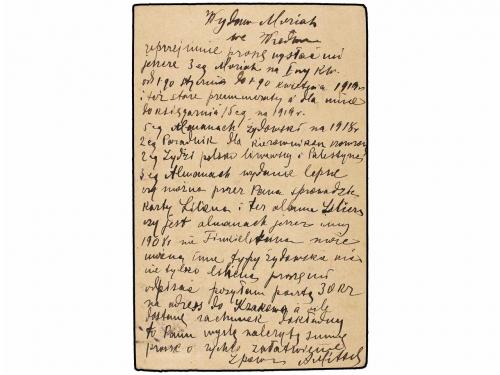 Wydaw. Moriah
we Wiedniu
uprzejmie proszę wysłać mi
jeszcze 3 eg Moriah na I-wy kw.
od 1-go stycznia do 1-go kwietnia 1919 r.
i też stare prenumeraty a dla mnie
do księgarni 15 eg. na 1919 r.
5 eg Almanach żydowski na 1918 r
2 eg Poradnik dla kierowników
2 eg Żydzi polsko litewscy i Palestyna
3 eg Almanach wydanie lepsze
czy można przez Pana sprowadzić
karty Liliena i też album Liliena
czy jest almanach jeszcze
1908 r. może
inne typy żydowska nie
nie tylko Liliena proszę mi
odpisać posyłam pocztą 30 Kr
na adres do Krakowa a gdy
dostanę rachunek dokładny
to Panu wyślę należytą sumę
proszę o rychłe załatwienie
Z poważ.